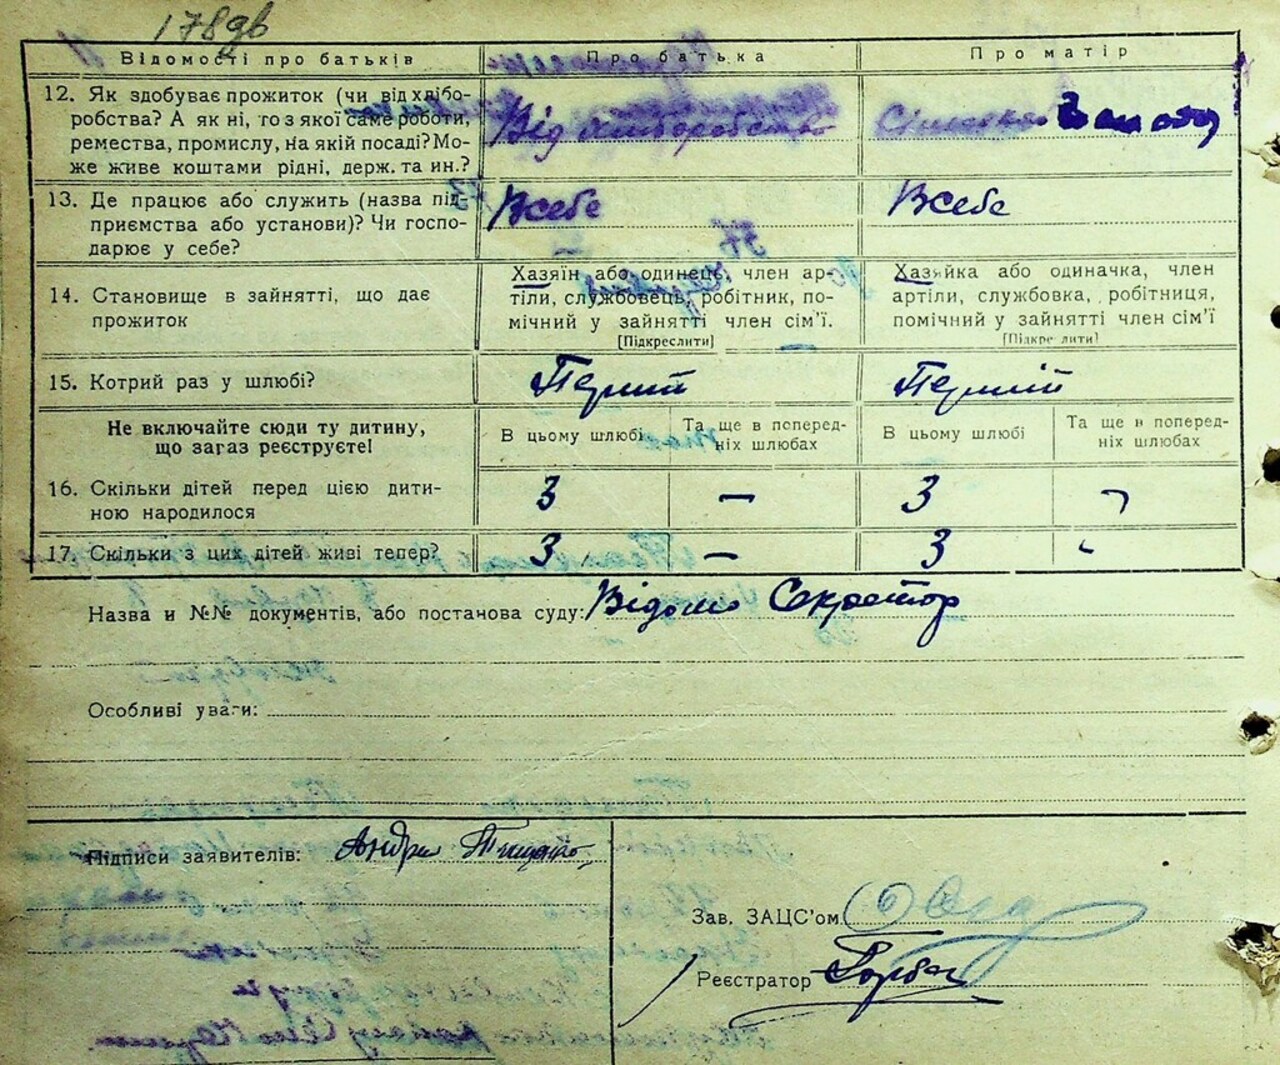 178дв
Відомості про батьків Про батька Про матір
12. Як здобуває прожиток (чи від хлібо-
робства? А як ні, то з якої саме роботи,
ремества, промислу, на якій посаді? Мо-
же живе коштами рідні, держ. та ин.?
Від хліборобства
13. Де працює або служить (назва під-
приємства або установи)? Чи госпо-
дарює у себе?
Всебе Всебе
14. Становище в зайнятті, що дає
прожиток
Хазяїн або одинець, член ар-
тіли, службовець, робітник, по-
мічний у зайнятті член сім’ї.
[Підкреслити]
Хазяйка або одиначка, член
артіли, службовка, робітниця,
помічний у зайнятті член сім’ї
[Підкреслити]
15. Котрий раз у шлюбі? Перший Перший
Не включайте сюди ту дитину,
що загаз реєструєте!
В цьому шлюбі
Та ще в поперед-
ніх шлюбах
В цьому шлюбі
Та ще в поперед-
ніх шлюбах
16. Скільки дітей перед цією дити-
ною народилося
3 — 3
17. Скільки з цих дітей живі тепер? 3 — 3
Назва и №№ документів, або постанова суду: Відомо Секретар
Особливі уваги:
Підписи заявителів: Андрій Тищенко
Зав. ЗАЦС’ом
Реєстратор Горбач